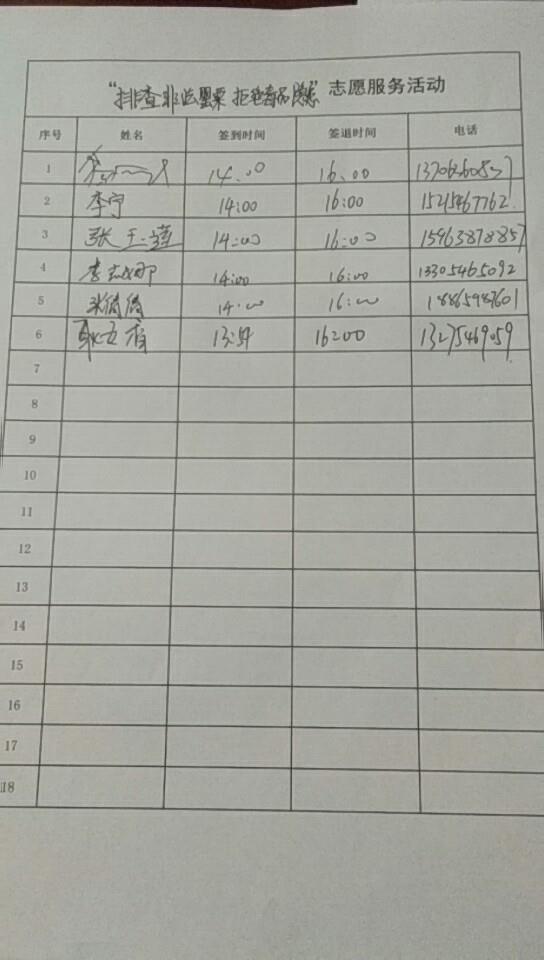 “排查非法罂粟 拒绝毒品隐患”志愿服务活动
序号 姓名 签到时间 签退时间 电话
1 14:00 16:00
2 李宁 14:00 16:00 15215467762
3 张玉莲 14:00 16:00 15963878857
4 李志娜 14:00 16:00 13305465092
5 张倩倩 14:00 16:00 18865987601
6 16:00 13275469059
7
8
9
10
11
12
13
14
15
16
17
18